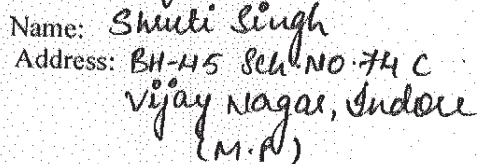 Name: Shruti Singh
Address: BH-45 Sch. No. 74 C
Vijay Nagar, Indore
(M.P)